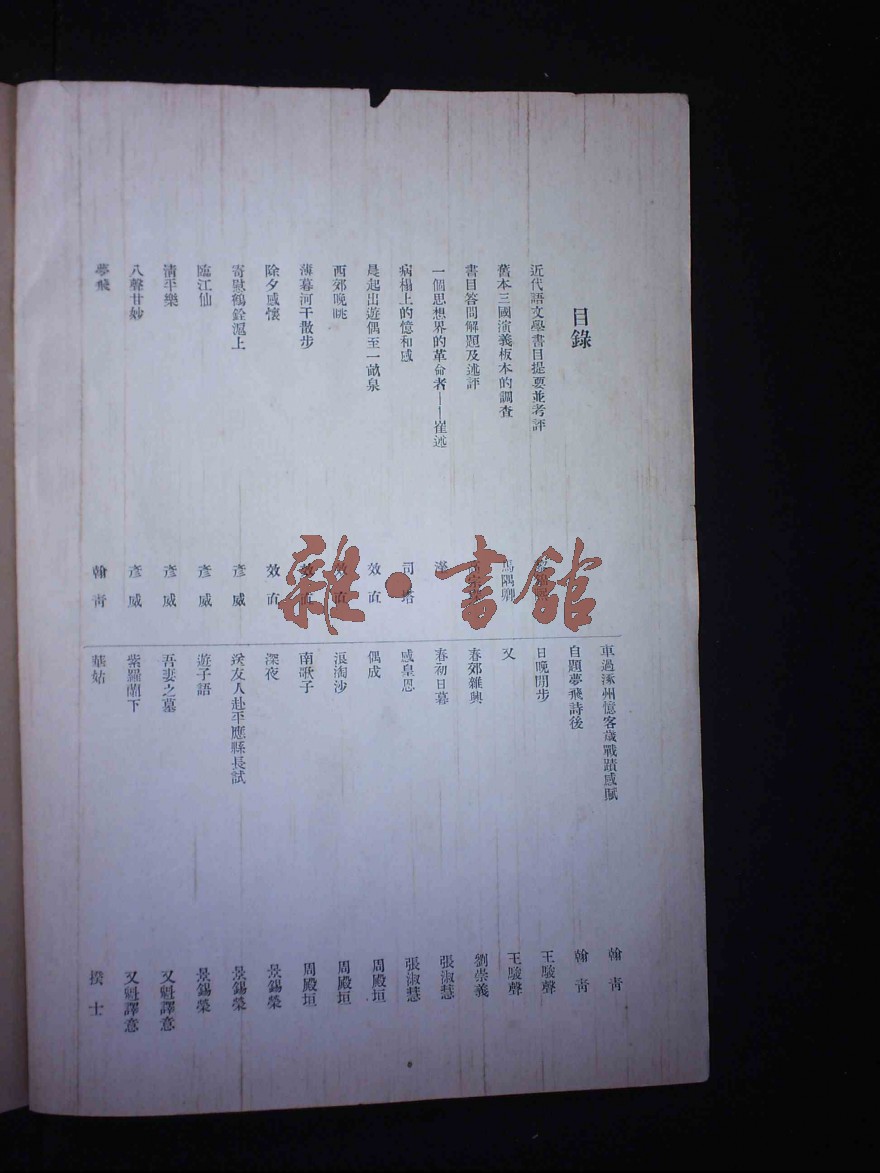 目錄
近代語文學書目提要並考評
舊本三國演義板本的調查 馬隅卿
書目答問解題及述評
一個思想界的革命者——崔述
病榻上的憶和感 司塔
晨起出遊偶至一畝泉 效直
西郊晚眺 效直
薄暮河干散步 效直
除夕感懷 效直
寄慰鶴銓滬上 彥威
臨江仙 彥威
清平樂 彥威
八聲甘妙 彥威
夢飛 翰青
車過涿州憶客歲戰蹟感賦 翰青
自題夢飛詩後 翰青
日晚閒步 王駿聲
又 王駿聲
春郊雜興 劉崇義
春初日暮 張淑慧
感皇恩 張淑慧
偶成 周殿垣
浪淘沙 周殿垣
南歌子 周殿垣
深夜 景錫榮
送友人赴平應縣長試 景錫榮
遊子語 景錫榮
吾斐之墓 又魁譯意
紫羅蘭下 又魁譯意
華姑 揆士
雜·書館